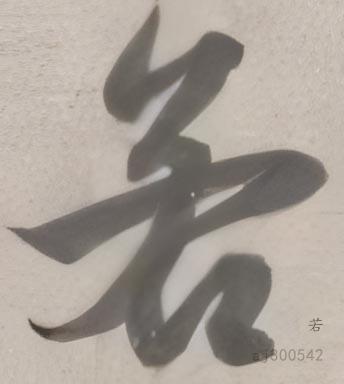 若
若
aj800542